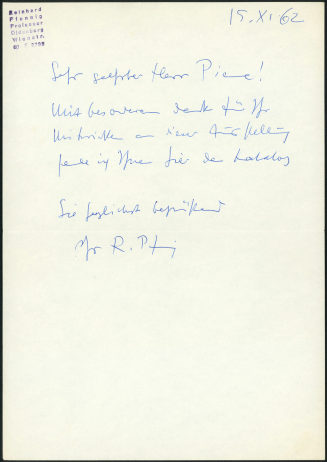 Reinhard
Pfennig
Professor
Oldenburg
15. XI. 62
Sehr geehrter Herr Piene!
Mit besonderem Dank für Ihr
Mitwirken an einer Ausstellung
sende ich Ihnen hier den Katalog
Sie herzlichst begrüßend
Ihr R. Pfennig